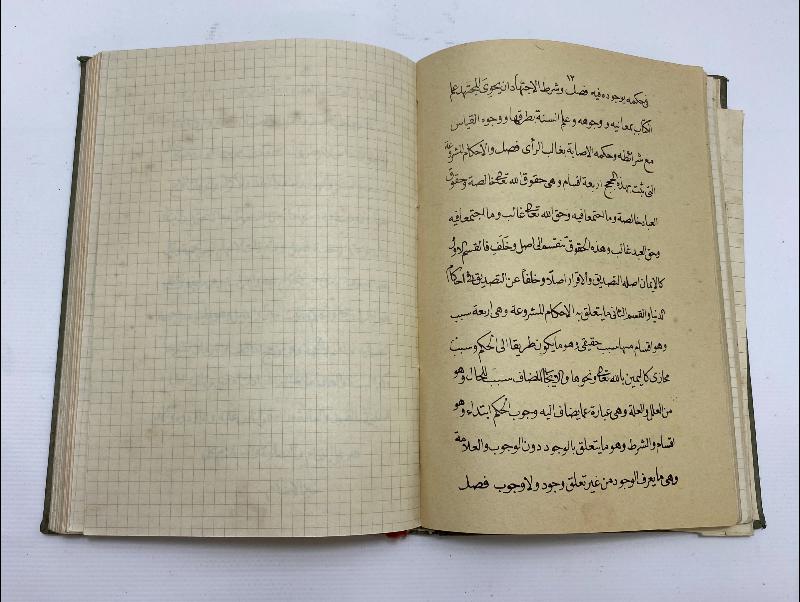 ١٢
وحكمه بوجوده فيه فصل وشرط الاجتهاد ان يحوى المجتهد علم
الكتاب بمعانيه ووجوهه وعلم السنة بطرقها ووجوه القياس
مع شرائطه وحكمه الاصابة بغالب الرأى فصل والاحكام المشروعة
التى ثبت بهذه الحجج اربعة اقسام وهى حقوق الله تعالى خالصة وحقوق
العباد خالصة وما اجتمعا فيه وحق الله تعالى غالب وما اجتمعا فيه
وحق العبد غالب وهذه الحقوق تنقسم الى اصل وخلف فالقسم الاول
كالايمان اصله التصديق والاقرار اصلا وخلفا عن التصديق فى احكام
الدنيا والقسم الثانى ما يتعلق به الاحكام المشروعة وهى اربعة سبب
وهو اقسام منها سبب حقيقى وهو ما يكون طريقا الى الحكم وسبب
مجازى كاليمين بالله تعالى ونحوها والايجاب المضاف سبب للحال وهو
من العلل والعلة وهى عبارة عما يضاف اليه وجوب الحكم ابتداء وهو
اقسام والشرط وهو ما يتعلق بالوجود دون الوجوب والعلامة
وهى ما يعرف الوجود من غير تعلق وجود ولا وجوب فصل